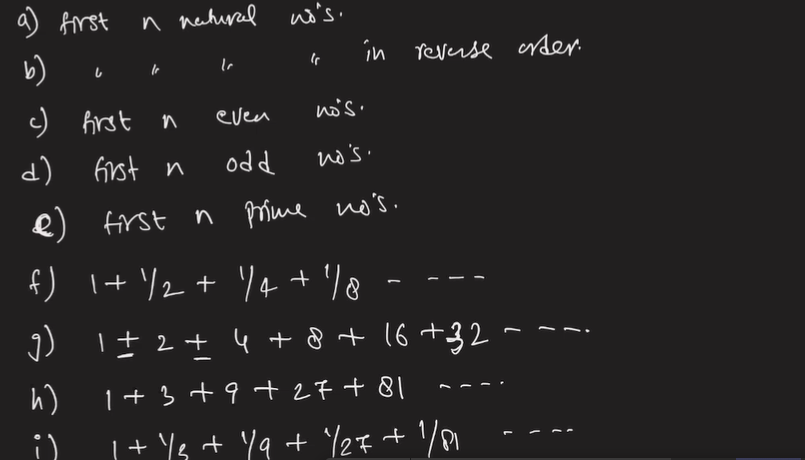 a) first n natural no's.
b) " " " " in reverse order.
c) first n even no's.
d) first n odd no's.
e) first n prime no's.
f) 1 + 1/2 + 1/4 + 1/8 - ----
g) 1 + 2 + 4 + 8 + 16 + 32 - ----.
h) 1 + 3 + 9 + 27 + 81 ----.
i) 1 + 1/3 + 1/9 + 1/27 + 1/81 ----